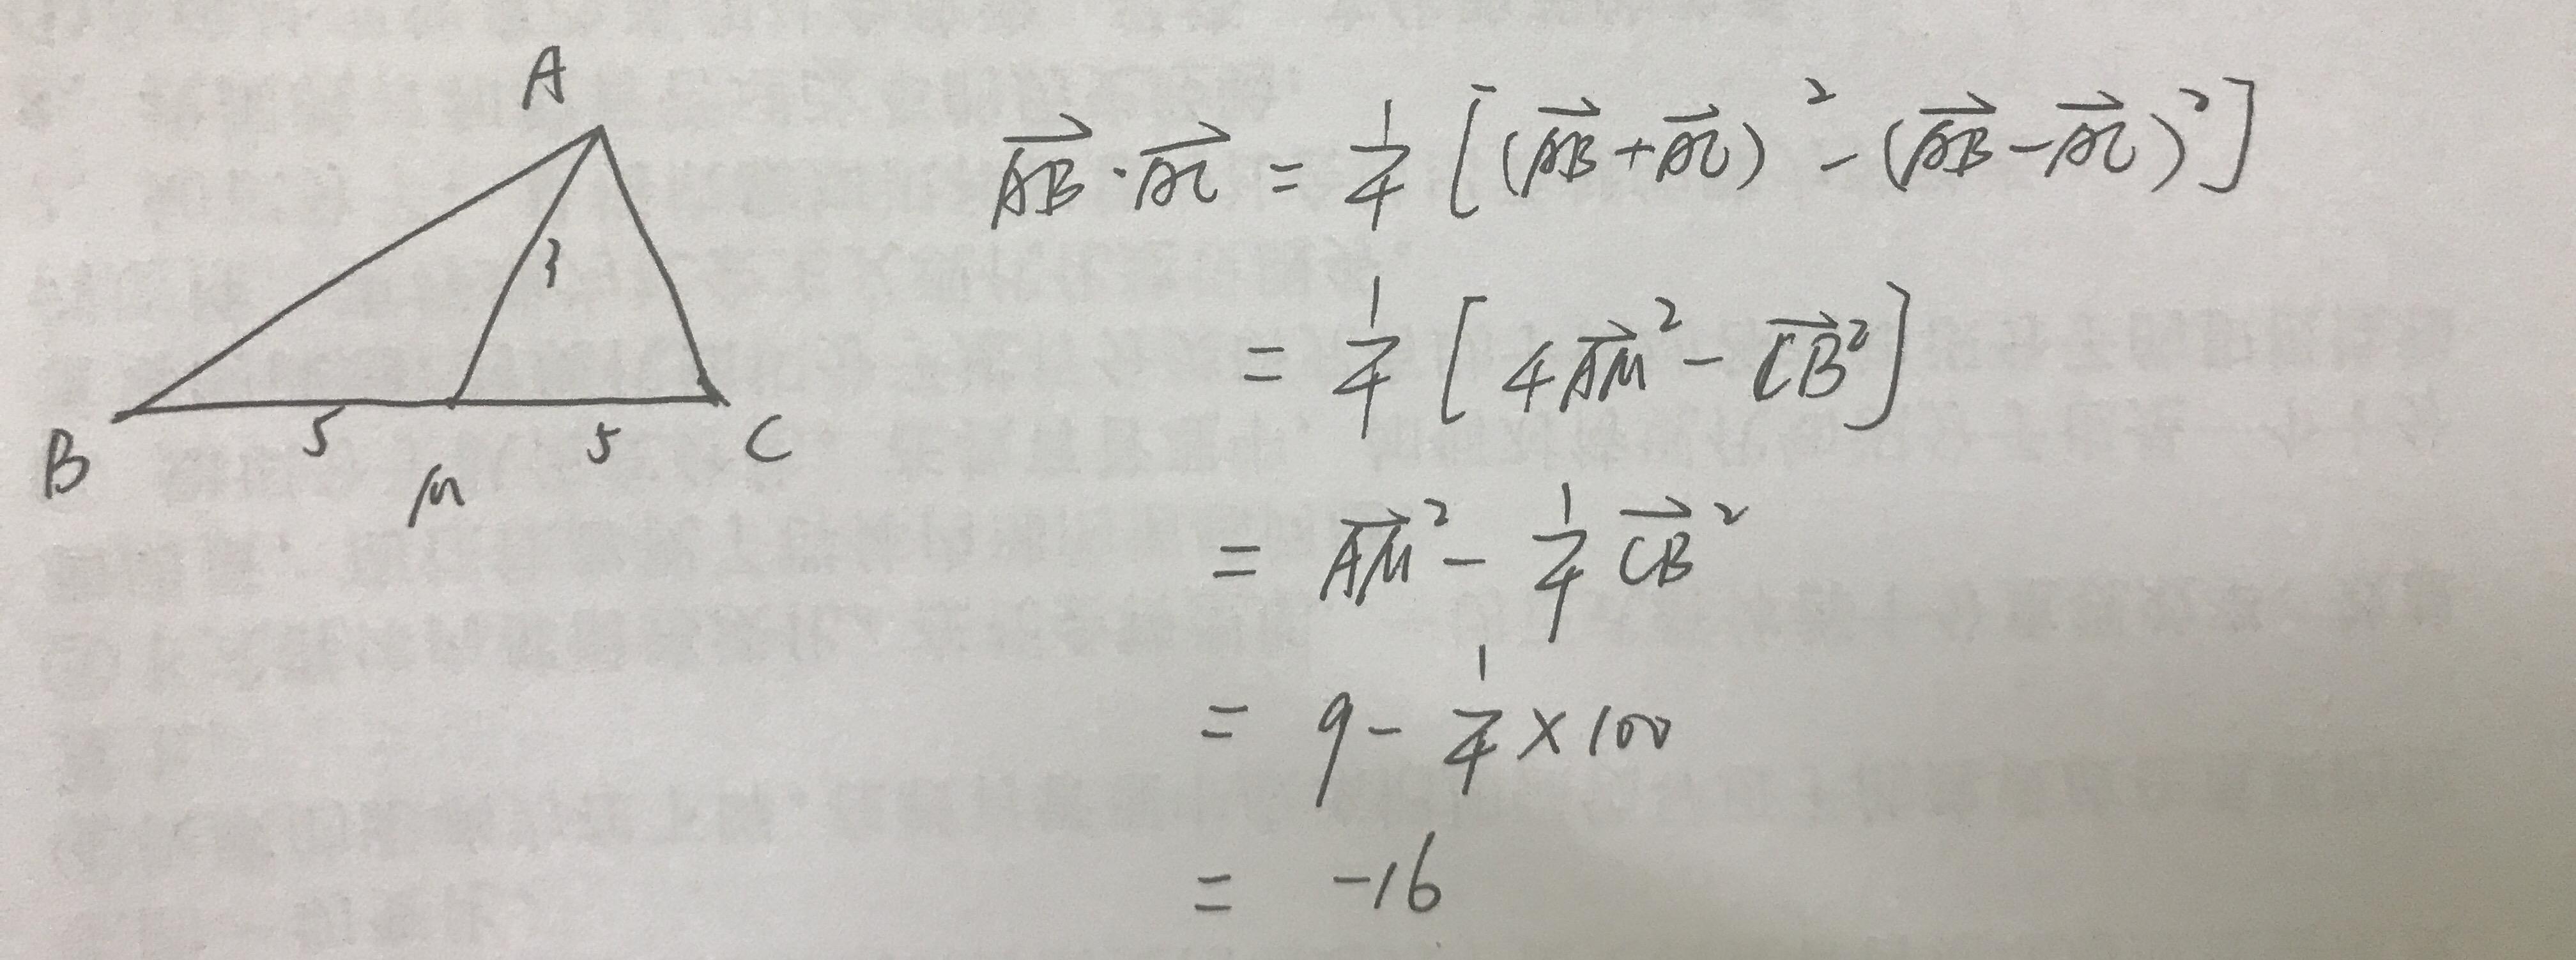 A
3
B
5
M
5
C
$\overrightarrow{AB} \cdot \overrightarrow{AC} = \frac{1}{4} [(\overrightarrow{AB} + \overrightarrow{AC})^2 - (\overrightarrow{AB} - \overrightarrow{AC})^2]$
$= \frac{1}{4} [4\overrightarrow{AM}^2 - \overrightarrow{CB}^2]$
$= \overrightarrow{AM}^2 - \frac{1}{4} \overrightarrow{CB}^2$
$= 9 - \frac{1}{4} \times 100$
$= -16$